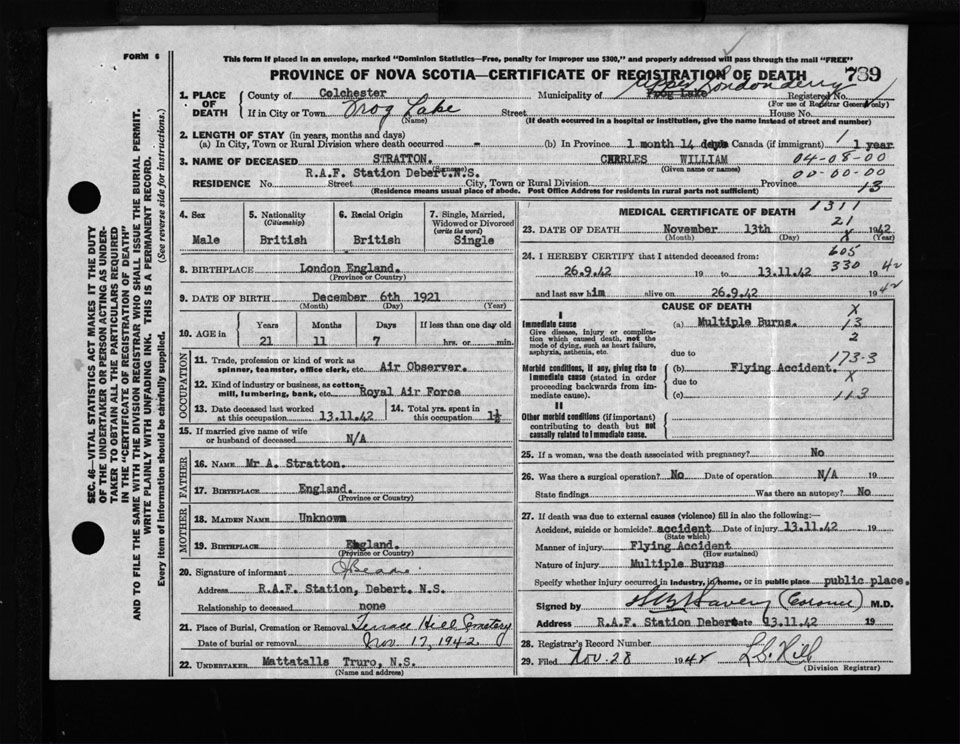 FORM 6
This form if placed in an envelope, marked "Dominion Statistics—Free, penalty for improper use $300," and properly addressed will pass through the mail "FREE"
PROVINCE OF NOVA SCOTIA—CERTIFICATE OF REGISTRATION OF DEATH 739
SEC. 46—VITAL STATISTICS ACT MAKES IT THE DUTY
OF THE UNDERTAKER OR PERSON ACTING AS UNDER-
TAKER TO OBTAIN ALL THE PARTICULARS REQUIRED
IN THE "CERTIFICATE OF REGISTRATION OF DEATH"
AND TO FILE THE SAME WITH THE DIVISION REGISTRAR WHO SHALL ISSUE THE BURIAL PERMIT.
WRITE PLAINLY WITH UNFADING INK. THIS IS A PERMANENT RECORD.
Every item of information should be carefully supplied. (See reverse side for instructions.)
1. PLACE OF DEATH
County of Colchester Municipality of Upper Londonderry Frog Lake Registered No.
(For use of Registrar General only)
If in City or Town Frog Lake Street House No.
(Name) (If death occurred in a hospital or institution, give the name instead of street and number)
2. LENGTH OF STAY (in years, months and days)
(a) In City, Town or Rural Division where death occurred - (b) In Province 1 month 14 days Canada (if immigrant) 1 year
3. NAME OF DECEASED STRATTON. CHARLES WILLIAM 04-08-00
(Surname) (Given name or names)
R.A.F. Station Debert.N.S. 00-00-00
RESIDENCE No. Street City, Town or Rural Division Province 13
(Residence means usual place of abode. Post Office Address for residents in rural parts not sufficient)
4. Sex
Male
5. Nationality
(Citizenship)
British
6. Racial Origin
British
7. Single, Married,
Widowed or Divorced
(write the word)
Single
8. BIRTHPLACE London England.
(Province or Country)
9. DATE OF BIRTH December 6th 1921
(Month) (Day) (Year)
10. AGE in
Years Months Days If less than one day old
21 11 7 hrs. or min.
OCCUPATION
11. Trade, profession or kind of work as
spinner, teamster, office clerk, etc. Air Observer.
12. Kind of industry or business, as cotton-
mill, lumbering, bank, etc. Royal Air Force
13. Date deceased last worked
at this occupation 13.11.42
14. Total yrs. spent in
this occupation 1½
15. If married give name of wife
or husband of deceased N/A
FATHER
16. NAME Mr A. Stratton.
17. BIRTHPLACE England.
(Province or Country)
MOTHER
18. MAIDEN NAME Unknown
19. BIRTHPLACE England.
(Province or Country)
20. Signature of informant
Address R.A.F. Station, Debert. N.S.
Relationship to deceased none
21. Place of Burial, Cremation or Removal Terrace Hill Cemetery
Date of burial or removal Nov. 17, 1942
22. UNDERTAKER Mattatalls Truro, N.S.
(Name and Address)
MEDICAL CERTIFICATE OF DEATH 1311
21
23. DATE OF DEATH November 13th 1942
(Month) (Day) X (Year)
605
24. I HEREBY CERTIFY that I attended deceased from: 330
26.9.42 19 to 13.11.42 1942
and last saw him alive on 26.9.42 1942
CAUSE OF DEATH X
I
Immediate cause
Give disease, injury or complica-
tion which caused death, not the
mode of dying, such as heart failure,
asphyxia, asthenia, etc.
(a) Multiple Burns. 13
2
due to 173-3
Morbid conditions, if any, giving rise to
Immediate cause (stated in order
proceeding backwards from im-
mediate cause).
(b) Flying Accident.
due to X
(c) 113
II
Other morbid conditions (if important)
contributing to death but not
causally related to immediate cause.
25. If a woman, was the death associated with pregnancy? No
26. Was there a surgical operation? No Date of operation N/A 19
State findings Was there an autopsy? No
27. If death was due to external causes (violence) fill in also the following:—
Accident, suicide or homicide? accident Date of injury 13.11.42 19
(State which)
Manner of injury Flying Accident
(How sustained)
Nature of injury Multiple Burns
Specify whether injury occurred in industry, in home, or in public place public place.
Signed by (Coroner) M.D.
Address R.A.F. Station Debert Date 13.11.42 19
28. Registrar's Record Number
29. Filed Nov. 28 1942 Hill
(Division Registrar)